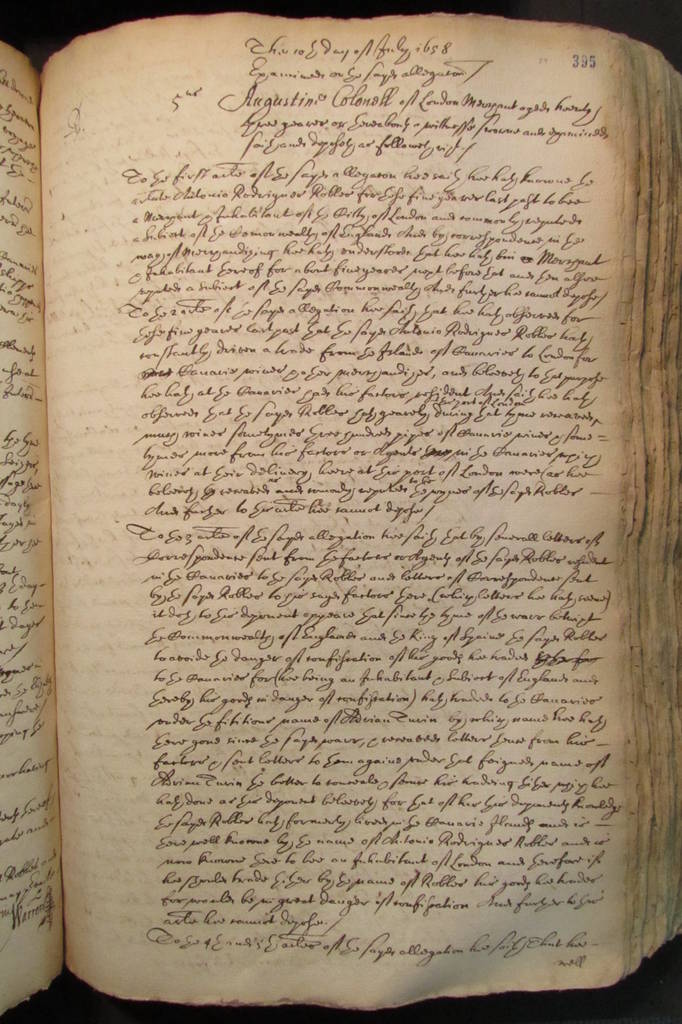 The 10th day of July 1658
395
Examined on the sayd allegation /
5us Augustine Colonell of London Merchant aged twenty
three yeares or thereabouts a wittnesse sworne and examined
saith and deposeth as followeth vizt /
To the first arle of the sayd allegaton hee saith hee hath knowne the
arlate Antonio Rodrigues Robles for these five yeares last past to bee
a Merchant & Inhabitant of the Citty of London and commonly reputed
a subiect of the Comonwealth of England And by correspondence in the
way of Merchandizing hee hath understood that hee hath bin a Merchant
& Inhabitant hereof for about five yeares next before that and then alsoe
reputed a subiect of the sayd Commonwealth And further hee cannot depose /
To the 2 arle of the sayd allegation hee saith that hee hath observed for
these five yeares last past that the sayd Antonio Rodrigues Robles hath
constantly driven a trade from the Islands of Canaries to London for
Canarie wines & other merchandizes, and beleeveth to that purpose
hee hath at the Canaries had his factors resident And saith hee hath
observed that the sayd Robles hath yearely during that tyme receaved at
this port of London
many wines sometymes three hundred pipes of Canarie wines & some=
tymes more from his factors or Agents in the Canaries which
wines at their delivery heere at this port of London were as hee
beleeveth receaved as and comonly reputed to bee the wynes of the sayd Robles
And further to this arle hee cannot depose /
To the 3 arle of the sayd allegation hee saith that by severall letters of
Correspondence sent from the factors or Agents of the sayd Robles resident
in the Canaries to the sayd Robles and letters of Correspondence sent
by the sayd Robles to his sayd factors there (which letters hee hath seene)
it doth to this deponent appeare that since the tyme of the warr betwixt
the Commonwealth of England and the King of Spaine the sayd Robles
to avoide the danger of confiscation of his goods hee traded
to the Canaries for (hee being an Inhabitant & subiect of England and
thereby his goods in danger of confiscation) hath traded to the Canaries
under the fititious name of Adrian Turin by which name hee hath
there gone since the sayd warr, & receaved letters hence from his
factors & sent letters to them againe under that feigned name of
Adrian Turin the better to conceale & secure his trading thither which hee
hath done as this deponent beleeveth for that of his this deponents knowledge
the sayd Robles hath formerly lived in the Canarie Islands and is
there well knowne by the name of Antonio Rodrigues Robles and is
now knowne there to bee an Inhabitant of London and therefore if
hee should trade thither by the name of Robles his goods hee traded
for would be in great danger of confiscation And further to this
arle hee cannot depose. /
To the 4th and 5th arles of the sayd allegation hee saith That hee
well